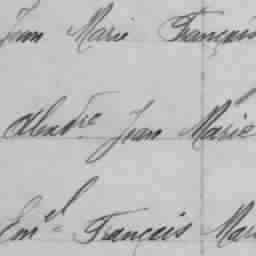 Jean Marie François
Alexdre Jean Marie
Em.el François Mari